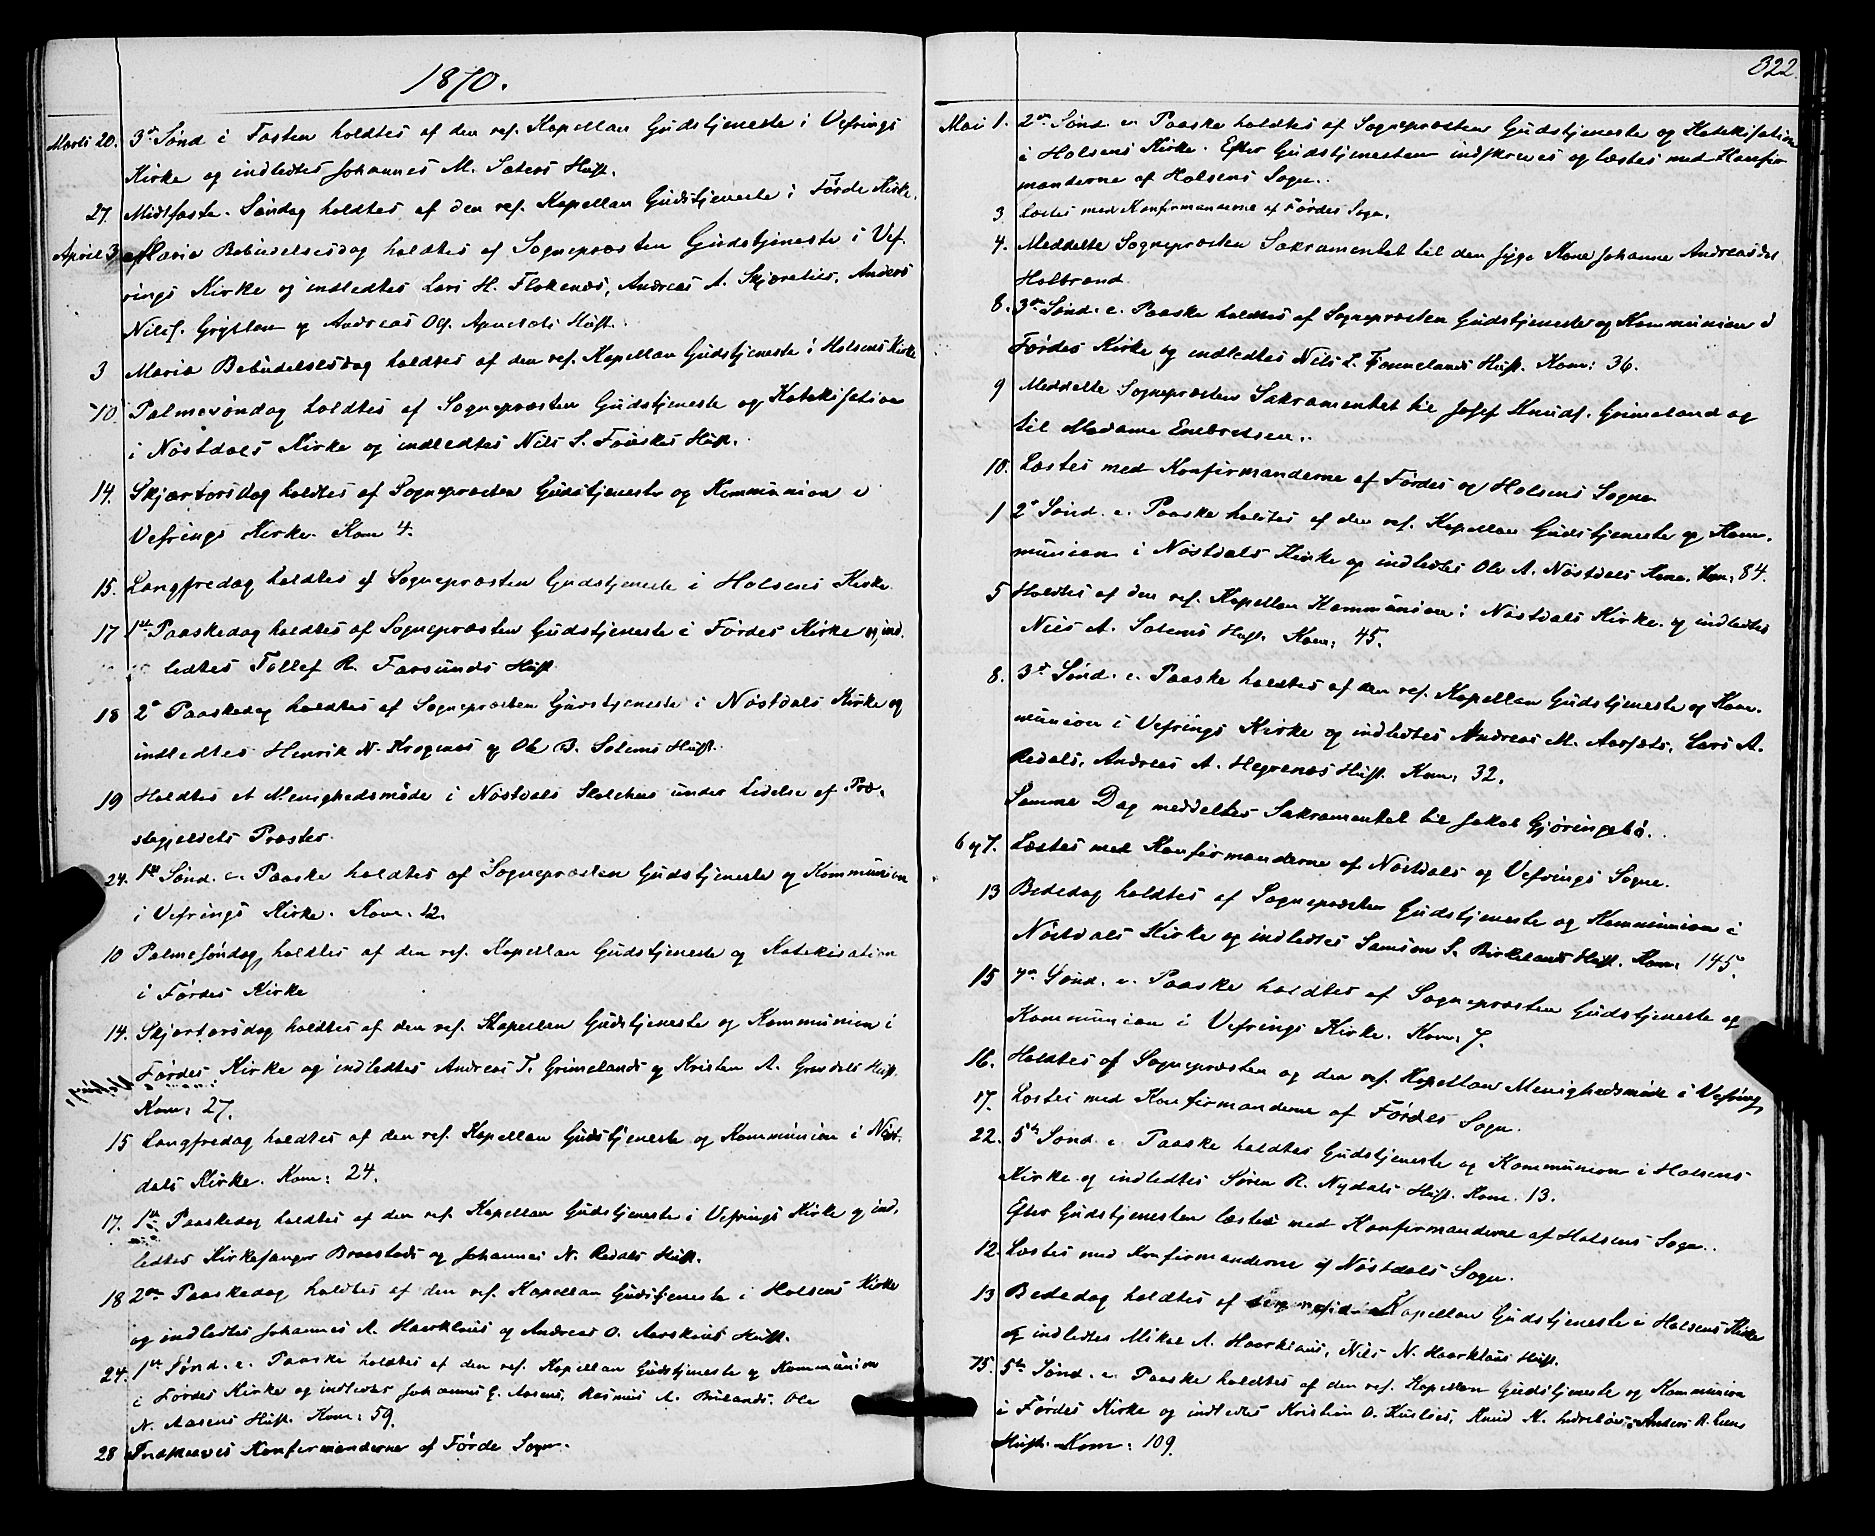 1870.
Marts 20. 3die Sønd i Fasten holdtes af den res. Kapellan Gudstjeneste i Vefrings
Kirke og indledtes Johannes M. Sæters Hust.
27. Midtfaste-Søndag holdtes af den res. Kapellan Gudstjeneste i Førde Kirke.
April 3 Maria Bebudelsesdag holdtes af Sognepræsten Gudstjeneste i Vef-
rings Kirke og indledtes Lars H. Flokenæs, Andreas A. Anders
Nils. og Andreas Hust.
3 Maria Bebudelsesdag holdtes af den res. Kapellan Gudstjeneste i Holsens Kirke
10. Palmesøndag holdtes af Sognepræsten Gudstjeneste og Katekisation
i Nøstdals Kirke og indledtes Nils S. Hust.
14. Skjærtorsdag holdtes af Sognepræsten Gudstjeneste og Kommunion i
Vefrings Kirke. Kom 4.
15. Langfredag holdtes af Sognepræsten Gudstjeneste i Holsens Kirke
17 1ste Paaskedag holdtes af Sognepræsten Gudstjeneste i Førdes Kirke og ind-
ledtes Tollef R. Farsunds Hust.
18 2. Paaskedag holdtes af Sognepræsten Gudstjeneste i Nøstdals Kirke og
indledtes Henrik N. og Ole B. Solems Hust.
19 Holdtes et Menighedsmøde i Nøstdals Skolehus under Ledelse af Præ-
stegjeldets Præster.
24. 1ste Sønd. e. Paaske holdtes af Sognepræsten Gudstjeneste og Kommunion
i Vefrings Kirke. Kom. 12.
10 Palmesøndag holdtes af den res. Kapellan Gudstjeneste og Katekisation
i Førdes Kirke
14. Skjærtorsdag holdtes af den res. Kapellan Gudstjeneste og Kommunion i
Førdes Kirke og indledtes Andreas T. Grimelands og Kristen A. Hust.
Kom: 27.
15 Langfredag holdtes af den res. Kapellan Gudstjeneste og Kommunion i Nøst-
dals Kirke. Kom: 24.
17. 1ste Paaskedag holdtes af den res. Kapellan Gudstjeneste i Vefrings Kirke og ind-
ledtes Kirkesanger og Johannes N. Redals Hust.
18 2den Paaskedag holdtes af den res. Kapellan Gudstjeneste i Holsens Kirke
og indledtes Johannes A. Haarklaus og Andreas O. Hust.
24. 1ste Sønd. e. Paaske holdtes af den res. Kapellan Gudstjeneste og Kommunion
i Førdes Kirke og indledtes Johannes Rasmus A. Ole
N. Aasens Hust. Kom: 59.
28 Indskreves Konfirmanderne af Førde Sogn.
322.
Mai 1. 2den Sønd. e. Paaske holdtes af Sognepræsten Gudstjeneste og Katekisation
i Holsens Kirke. Efter Gudstjenesten indskreves og læstes med Konfir-
manderne af Holsens Sogn.
3. Læstes med Konfirmanderne af Førdes Sogn.
4. Meddelte Sognepræsten Sakramentet til den syge Kone Johanne Andreasdtr
8. 3die Sønd. e. Paaske holdtes af Sognepræsten Gudstjeneste og Kommunion i
Førdes Kirke og indledtes Nils L. Hust. Kom: 36.
9 Meddelte Sognepræsten Sakramentet til Josef Knuds. Grimeland og
til Madame Enebretsen.
10. Læstes med Konfirmanderne af Førdes og Holsens Sogne
1 2. Sønd. e. Paaske holdtes af den res. Kapellan Gudstjeneste og Kom-
munion i Nøstdals Kirke og indledtes Ole A. Nøstdals Kone. Kom: 84.
5 Holdtes af den res. Kapellan Kommunion i Nøstdals Kirke og indledtes
Nils A. Solems Hust. Kom: 45.
8. 3die Sønd. e. Paaske holdtes af den res. Kapellan Gudstjeneste og Kom-
munion i Vefrings Kirke og indledtes Andreas M. Lars A.
Redals, Andreas A. Hegrenæs Hust. Kom: 32.
Samme Dag meddeltes Sakramentet til Jakob Gjøringebø.
6 og 7. Læstes med Konfirmanderne af Nøstdals og Vefrings Sogne.
13 Bededag holdtes af Sognepræsten Gudstjeneste og Kommunion i
Nøstdals Kirke og indledtes Samson S. Birkelands Hust. Kom: 145.
15 4de Sønd. e. Paaske holdtes af Sognepræsten Gudstjeneste og
Kommunion i Vefrings Kirke. Kom: 7.
16. Holdtes af Sognepræsten og den res. Kapellan Menighedsmøde i Vefring
17. Læstes med Konfirmanderne af Førdes Sogn.
22. 5te Sønd. e. Paaske holdtes Gudstjeneste og Kommunion i Holsens
Kirke og indledtes Søren R. Nydals Hust. Kom. 13.
Efter Gudstjenesten læstes med Konfirmanderne af Holsens Sogn.
12. Læstes med Konfirmanderne af Nøstdals Sogn.
13 Bededag holdtes af Kapellan Gudstjeneste i Holsens Kirke
og indledtes Mikal A. Haarklaus, Nils N. Haarklaus Hust.
15. 5te Sønd. e. Paaske holdtes af den res. Kapellan Gudstjeneste og Kommunion
i Førdes Kirke og indledtes Kristian O. Knud Anders R.
Hust. Kom: 109.